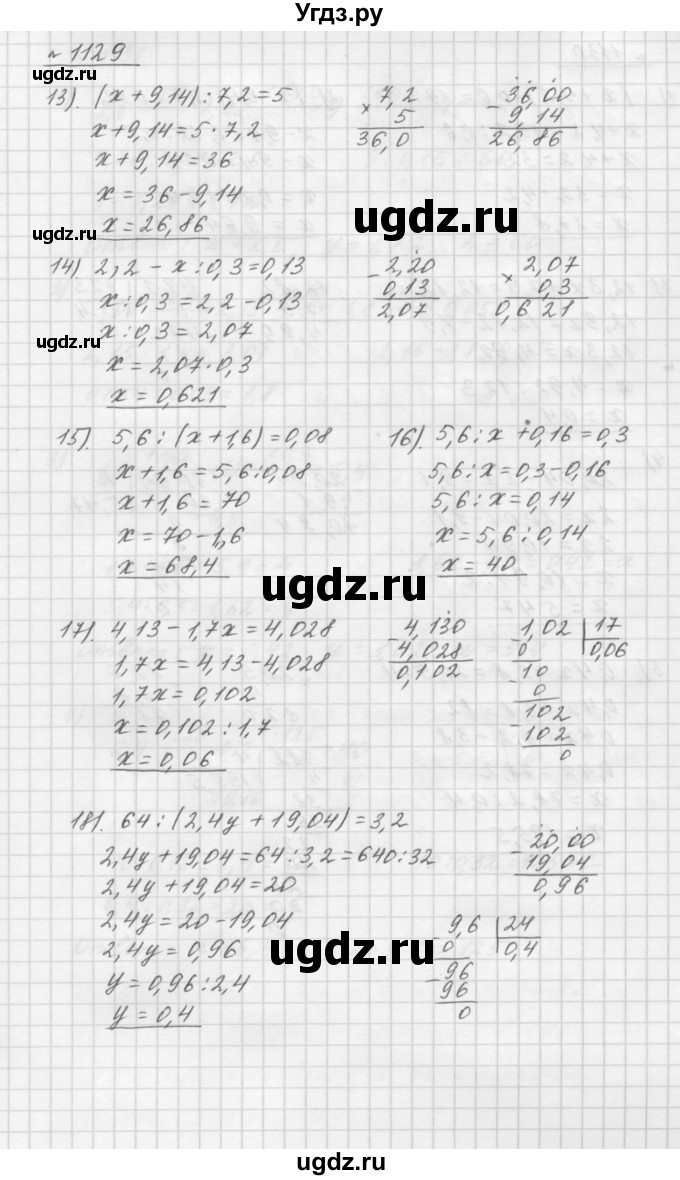 Угдз.ру
№ 1129
ugdz.ru
13). (x+9,14):7,2=5
x+9,14=5·7,2
x+9,14=36
x=36-9,14
x=26,86
× 7,2
5
36,0
- 36,00
9,14
26,86
ugdz.ru
ugdz.ru
14) 2,2-x:0,3=0,13
x:0,3=2,2-0,13
x:0,3=2,07
x=2,07·0,3
x=0,621
- 2,20
0,13
2,07
× 2,07
0,3
0,621
ugdz.ru
15). 5,6:(x+1,6)=0,08
x+1,6=5,6:0,08
x+1,6=70
x=70-1,6
x=68,4
16). 5,6:x+0,16=0,3
5,6:x=0,3-0,16
5,6:x=0,14
x=5,6:0,14
x=40
ugdz.ru
17). 4,13-1,7x=4,028
1,7x=4,13-4,028
1,7x=0,102
x=0,102:1,7
x=0,06
- 4,130
4,028
0,102
- 1,02 | 17
0 0,06
- 10
0
- 102
102
0
18). 64:(2,4y+19,04)=3,2
2,4y+19,04=64:3,2=640:32
2,4y+19,04=20
2,4y=20-19,04
2,4y=0,96
y=0,96:2,4
y=0,4
- 20,00
19,04
0,96
- 9,6 | 24
0 0,4
- 96
96
0
ugdz.ru
ugdz.ru
ugdz.ru